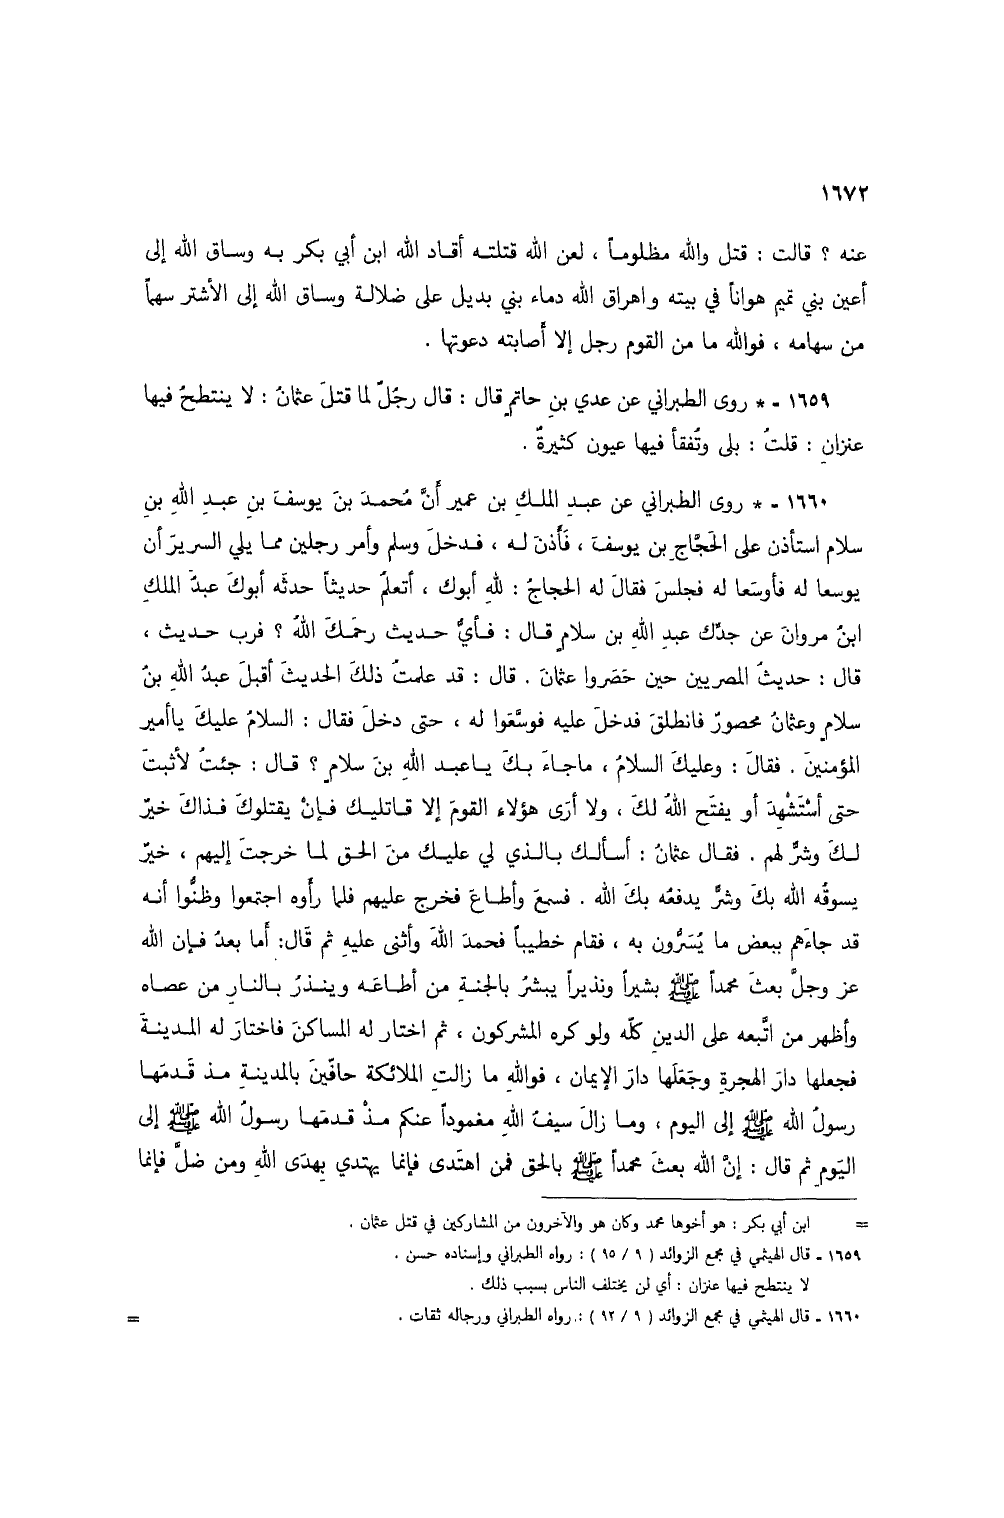 ١٦٧٢
عنه ؟ قالت : قتل والله مظلوماً ، لعن الله قتلته أقاد الله ابن أبي بكر به وساق الله إلى
أعين بني تميم هواناً في بيته واهراق الله دماء بني بديل على ضلالة وساق الله إلى الأشتر سهماً
من سهامه ، فوالله ما من القوم رجل إلا أَصابته دعوتها .
١٦٥٩ - * روى الطبراني عن عدي بنِ حاتمٍ قال : قال رجُلٌ لما قتلَ عثمانُ : لا ينتطحُ فيها
عنزانِ : قلتُ : بلى وتُفقأ فيها عيون كثيرةٌ .
١٦٦٠ - * روى الطبراني عن عبدِ الملكِ بن عمير أَنَّ مُحمدَ بنَ يوسفَ بنِ عبدِ اللهِ بنِ
سلام استأذن على الحَجَّاجِ بن يوسفَ ، فَأَذنَ له ، فدخلَ وسلم وأمر رجلين مما يلي السريرَ أن
يوسعا له فأوسَعا له فجلسَ فقالَ له الحجاجُ : للهِ أبوك ، أتعلمُ حديثاً حدثَه أبوكَ عبدَ الملكِ
ابنُ مروانَ عن جدِّك عبدِ اللهِ بن سلامٍ قال : فأيُّ حديث رحمَكَ اللهُ ؟ فرب حديث ،
قال : حديثُ المصريين حين حَصَروا عثمانَ . قال : قد علمتُ ذلكَ الحديثَ أقبلَ عبدُ اللهِ بنُ
سلامٍ وعثمانُ محصورٌ فانطلقَ فدخلَ عليه فوسَّعَوا له ، حتى دخلَ فقال : السلامُ عليكَ ياأمير
المؤمنينَ . فقالَ : وعليكَ السلامُ ، ماجاءَ بكَ ياعبد اللهِ بنَ سلامٍ ؟ قال : جئتُ لأثبتَ
حتى أسْتَشْهِدَ أو يفتَح اللهُ لكَ ، ولا أرَى هؤلاء القومَ إلا قاتليك فإنْ يقتلوكَ فذاكَ خيرٌ
لكَ وشرٌّ لهم . فقال عثمانُ : أسألك بالذي لي عليك منَ الحق لما خرجتَ إليهم ، خيرٌ
يسوقُه الله بكَ وشرٌّ يدفعُه بكَ الله . فسمعَ وأطاعَ فخرج عليهم فلما رأَوه اجتمعوا وظنُّوا أنه
قد جاءَهم ببعض ما يُسَرُّون به ، فقام خطيباً فحمدَ اللهَ وأثنى عليهِ ثم قَال: أَما بعدُ فإن الله
عز وجلَّ بعثَ محمداً ﷺ بشيراً ونذيراً يبشرُ بالجنةِ من أطاعَه وينذرُ بالنارِ من عصاه
وأظهر من اتَّبعه على الدينِ كلّه ولو كره المشركون ، ثم اختار له المساكنَ فاختارَ له المدينةَ
فجعلها دارَ الهجرةِ وجَعَلَها دارَ الإيمان ، فواللهِ ما زالتِ الملائكة حافّينَ بالمدينةِ مذ قَدمَها
رسولُ الله ﷺ إلى اليوم ، وما زالَ سيفُ اللهِ مغموداً عنكم مذْ قدمَها رسولُ الله ﷺ إلى
اليَومِ ثم قال : إنَّ الله بعثَ محمداً ﷺ بالحق فمن اهتَدى فإنما يهتدي بِهدَى اللهِ ومن ضلَّ فإنما
= ابن أبي بكر : هو أخوها محمد وكان هو والآخرون من المشاركين في قتل عثمان .
١٦٥٩ - قال الهيثمي في مجمع الزوائد ( ٩ / ٩٥ ) : رواه الطبراني وإسناده حسن .
لا ينتطح فيها عنزان : أي لن يختلف الناس بسبب ذلك .
١٦٦٠ - قال الهيثمي في مجمع الزوائد ( ٩ / ٩٢ ) : رواه الطبراني ورجاله ثقات . =